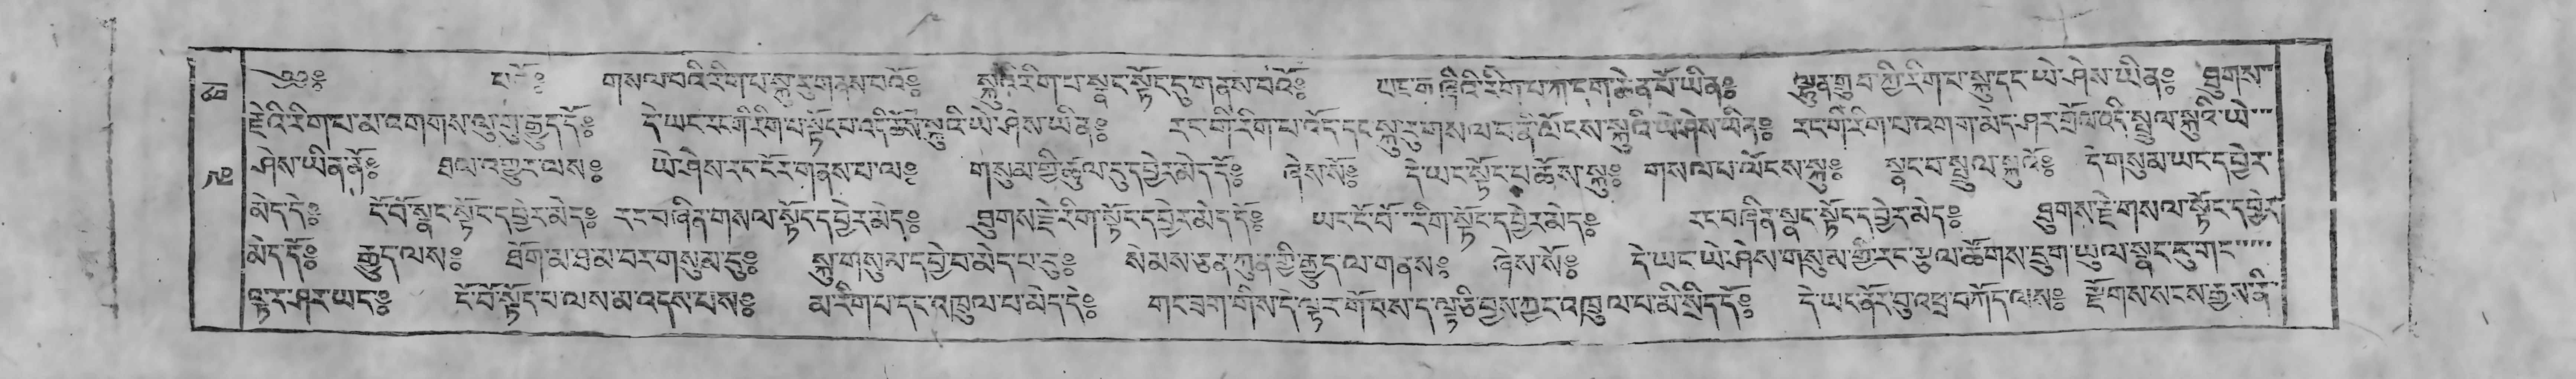 ༄༅༔ པའོ༔ གསལ་བའི་རིག་པ་སྐུ་རུ་གནས་པའོ༔ སྐུའི་རིག་པ་སྣང་སྟོང་དུ་གནས་པའོ༔ ཡང་གཞིའི་རིག་པ་ཀ་དག་ཆེན་པོ་ཡིན༔ ལྷུན་གྲུབ་ཀྱི་རིག་པ་སྐུ་དང་ཡེ་ཤེས་ཡིན༔ ཐུགས་
རྗེའི་རིག་པ་མ་འགགས་ལུ་གུ་རྒྱུད་དོ༔ དེ་ཡང་རང་གི་རིག་པ་སྟོང་པ་འདི་ཆོས་སྐུའི་ཡེ་ཤེས་ཡིན༔ རང་གི་རིག་པ་འོད་དང་སྐུ་རུ་གསལ་བ་ནི་ལོངས་སྐུའི་ཡེ་ཤེས་ཡིན༔ རང་གི་རིག་པ་འགག་མེད་ཤར་གྲོལ་འདི་སྤྲུལ་སྐུའི་ཡེ་
ཤེས་ཡིན་ནོ༔ ཐལ་འགྱུར་ལས༔ ཡེ་ཤེས་རང་ངོར་གནས་པ་ལ༔ གསུམ་གྱི་ཚུལ་དུ་དབྱེར་མེད་དོ༔ ཞེས་སོ༔ དེ་ཡང་སྟོང་པ་ཆོས་སྐུ༔ གསལ་པ་ལོངས་སྐུ༔ སྣང་བ་སྤྲུལ་སྐུའོ༔ དེ་གསུམ་ཡང་དབྱེར་
མེད་དེ༔ ངོ་བོ་སྣང་སྟོང་དབྱེར་མེད༔ རང་བཞིན་གསལ་སྟོང་དབྱེར་མེད༔ ཐུགས་རྗེ་རིག་སྟོང་དབྱེར་མེད་དོ༔ ཡང་ངོ་བོ་རིག་སྟོང་དབྱེར་མེད༔ རང་བཞིན་སྣང་སྟོང་དབྱེར་མེད༔ ཐུགས་རྗེ་གསལ་སྟོང་དབྱེར་
མེད་དོ༔ རྒྱུད་ལས༔ ཐོག་མ་ཐ་མ་བར་གསུམ་དུ༔ སྐུ་གསུམ་དབྱེ་བ་མེད་པ་རུ༔ སེམས་ཅན་ཀུན་གྱི་རྒྱུད་ལ་གནས༔ ཞེས་སོ༔ དེ་ཡང་ཡེ་ཤེས་གསུམ་གྱི་རང་རྩལ་ཚོགས་དྲུག་ཡུལ་སྣང་དུ་གང་
ལྟར་ཤར་ཡང༔ ངོ་བོ་སྟོང་པ་ལས་མ་འདས་པས༔ མ་རིག་པ་དང་འཁྲུལ་པ་མེད་དེ༔ གང་ཟག་གིས་དེ་ལྟར་གོམས་ན་ལྟ་ཅི་བྱས་ཀྱང་འཁྲུལ་པ་མི་སྲིད་དོ༔ དེ་ཡང་ནོར་བུ་འཕྲ་བཀོད་ལས༔ རྫོགས་སངས་རྒྱས་ནི་